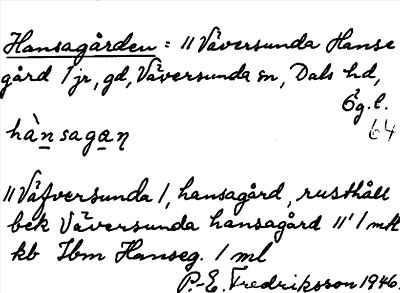 Hansagården : 11 Väversunda Hanse
gård 1 jr, gd, Väversunda sn, Dals hd,
Ög. l.
64
hànsagaṇ
11 Väfversunda 1, hansagård, rusthåll
bek Väversunda hansagård 11' 1 mtl
kb Ibm Hanseg. 1 ml
P.-E. Fredriksson 1946.